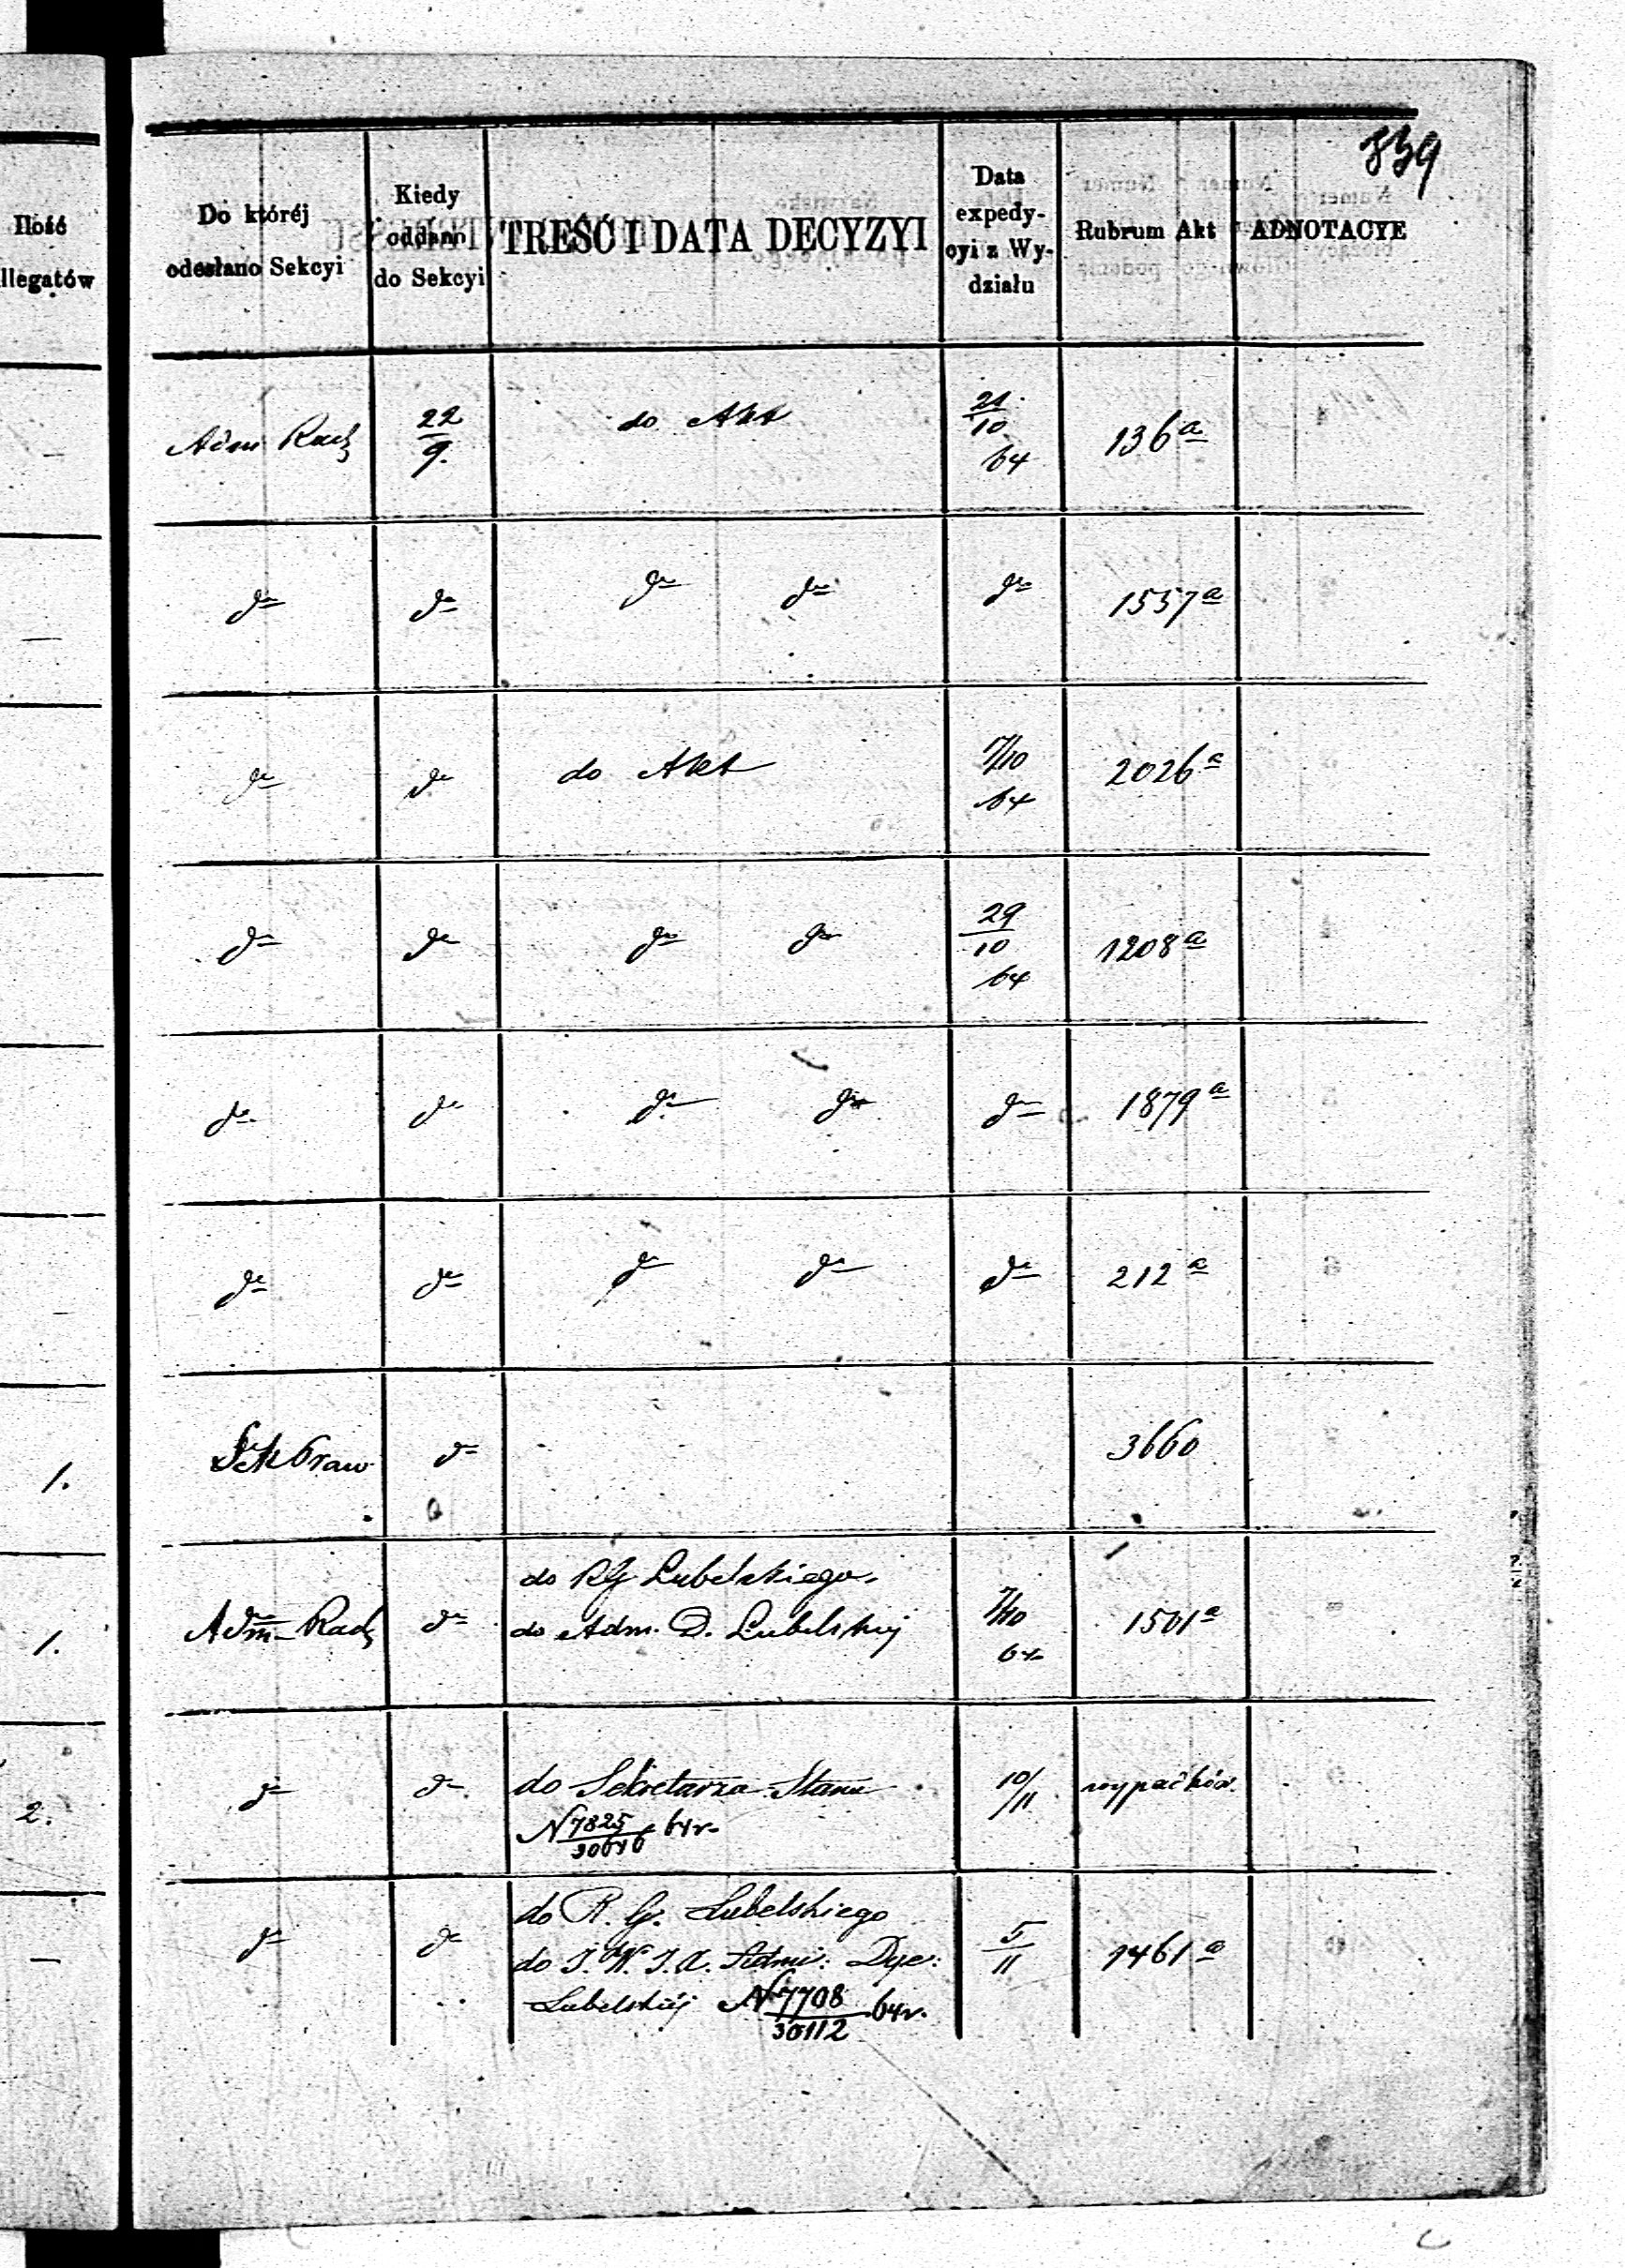 839
Ilość
llegatów
Do któréj
odesłano Sekcyi
Kiedy
oddano
do Sekcyi
TREŚĆ I DATA DECYZYI
Data
expedy-
cyi z Wy-
działu
Rubrum Akt
ADNOTACYE
—
Adm Rach
22/9.
do Akt
21/10
64
136 a
—
do
do
do do
do
1557 a
do
do
do Akt
17/10
64
2026 a
do
do
do do
29/10
64
1208 a
do
do
do do
do
1879 a
—
do
do
do do
do
212 a
1.
Sek Praw
do
3660
1.
Adm Rach
do
do RG Lubelskiego
do Adm. D. Lubelskiej
7/10
64
1501 a
2.
do
do
do Sekretarza Stanu
N 7825/30646 64 r.
10/11
wypadków
—
do
do
do R. G. Lubelskiego
do J. W. J. X. Admi: Dye:
Lubelskiéj N 7708/30112 64 r.
5/11
1461 a